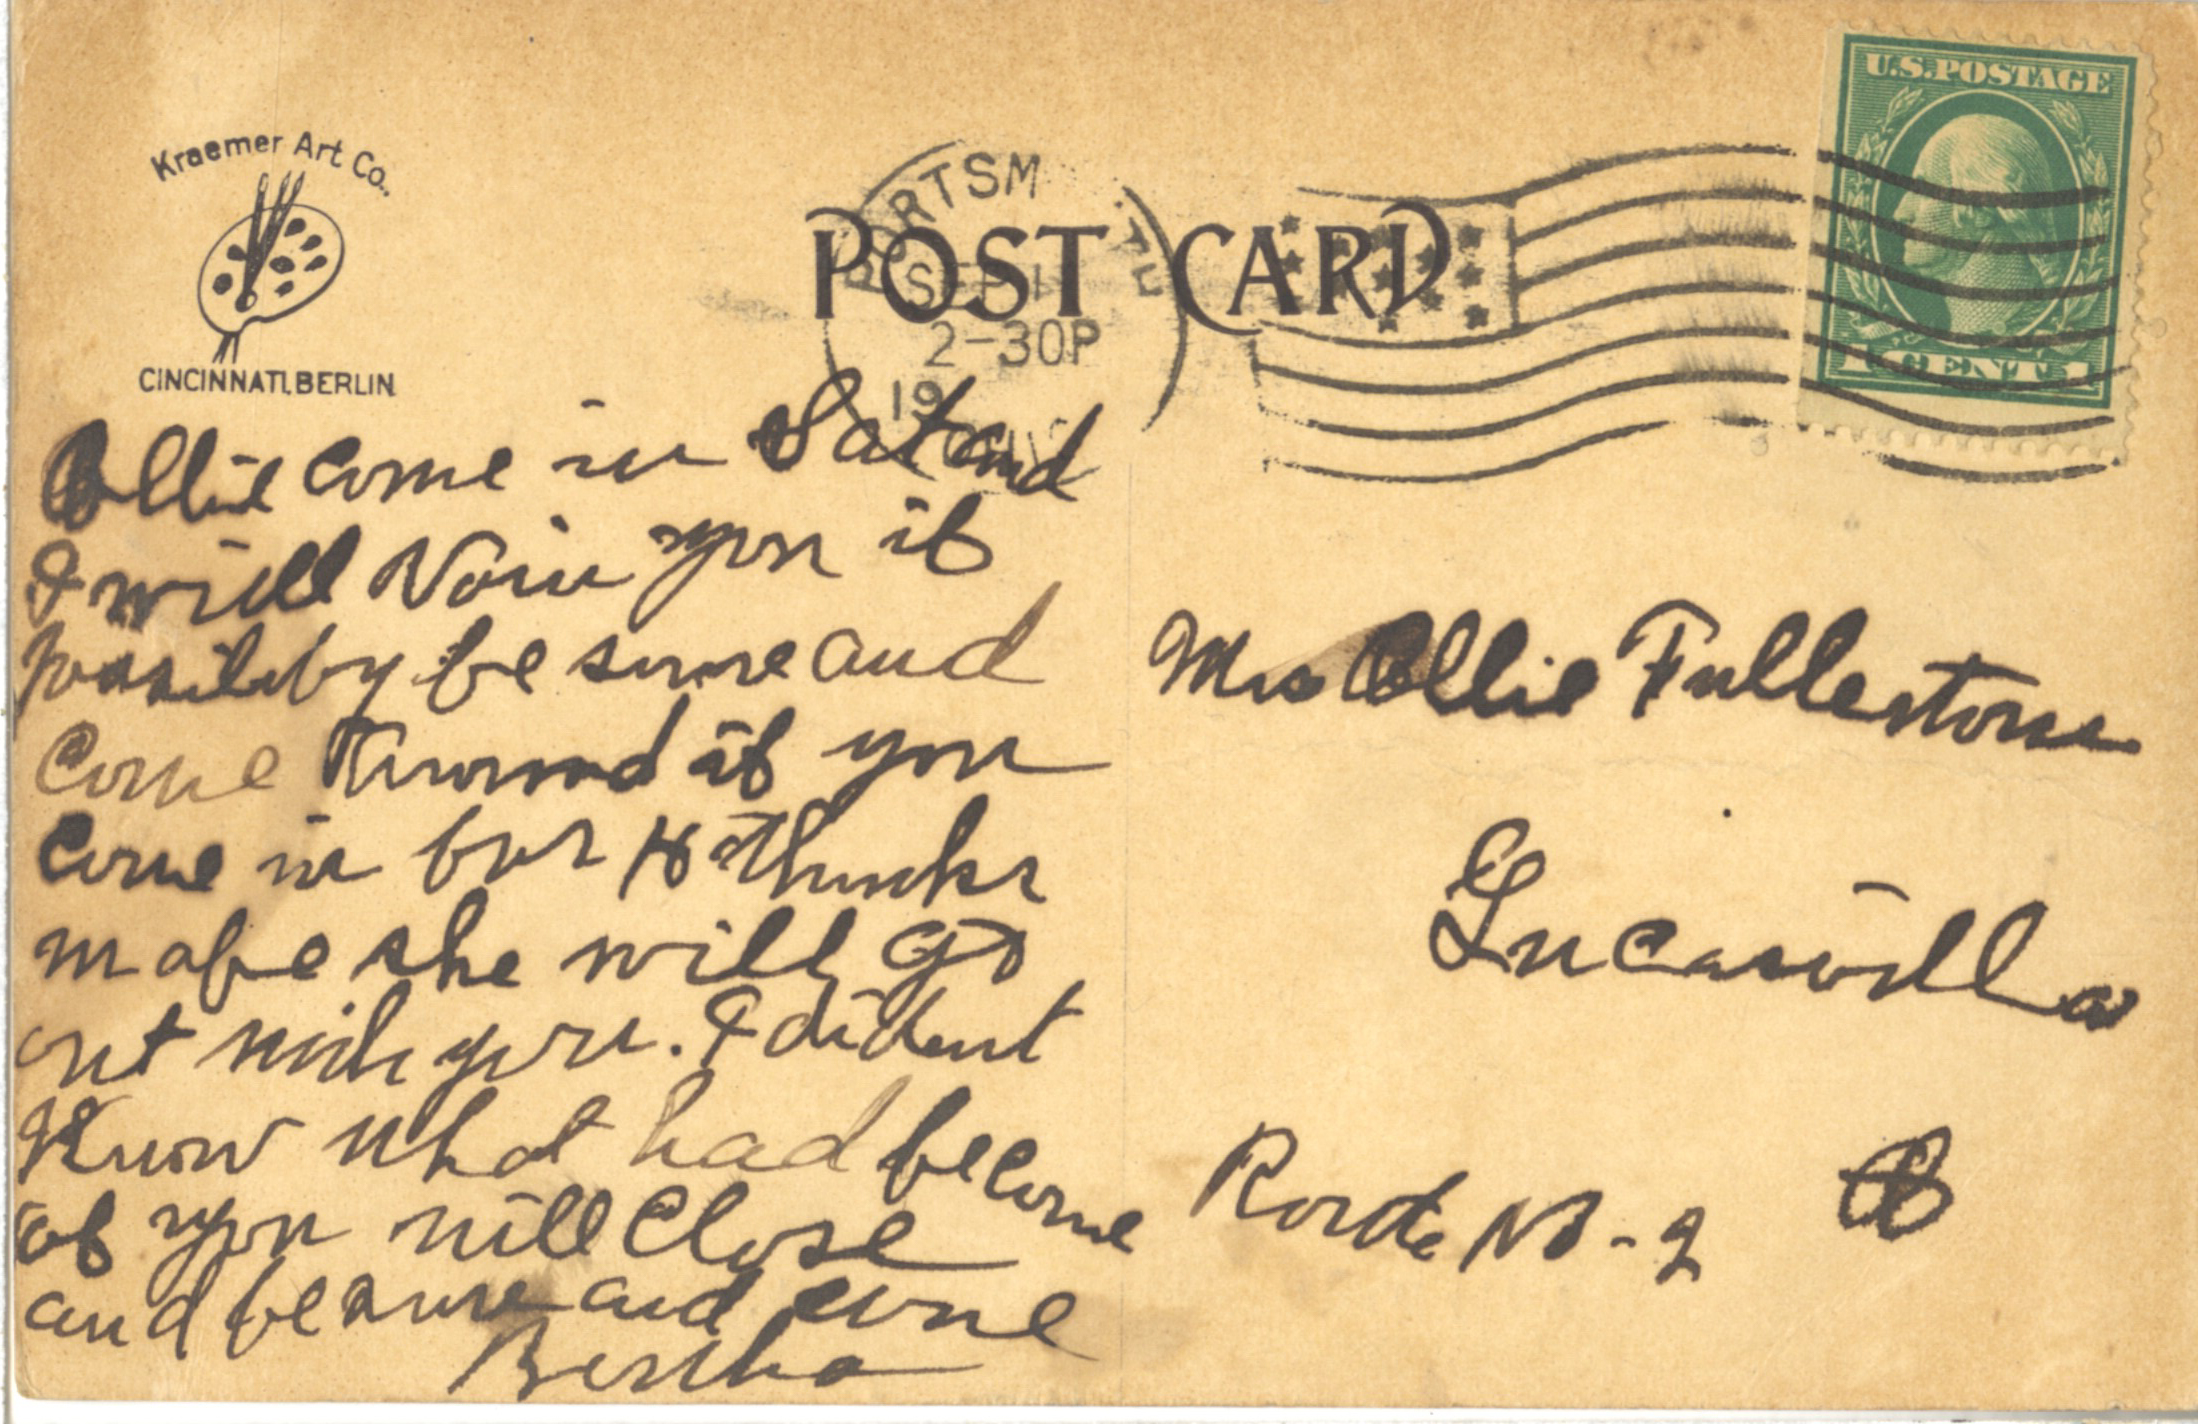 Kraemer Art Co.
CINCINNATI. BERLIN
POST CARD
PORTSM
SEP
2-30P
19
U.S.POSTAGE
1 CENT 1
Ollie come in Sat and
I will you if
possibly be sure and
Come Around if you
Come in for thinks
mabe she will go
out with you. I dident
Know what had become
of you will Close
and be sure and come
Bertha
Mrs Ollie Fullerton
Lucasville
Route No-2 O